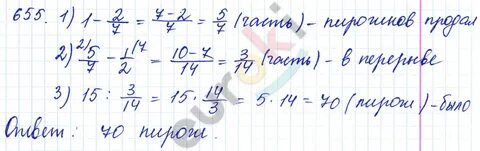 655. 1) 1 - 2/7 = 7-2/7 = 5/7 (часть) - пирожков продал
2) 2)5/7 - 1/2 (7 = 10-7/14 = 3/14 (часть) - в перерыве
3) 15 : 3/14 = 15 · 14/3 = 5 · 14 = 70 (пирож) - было
Ответ : 70 пирож.
euroki